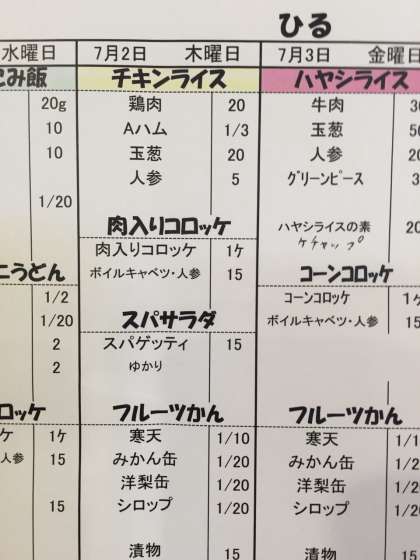 ひる
水曜日 7月2日 木曜日 7月3日 金曜日
み飯 チキンライス ハヤシライス
20g 鶏肉 20 牛肉
10 Aハム 1/3 玉葱
10 玉葱 20 人参
人参 5 グリーンピース
1/20
肉入りコロッケ ハヤシライスの素
ケチャップ
うどん 肉入りコロッケ 1ケ コーンコロッケ
1/2 ボイルキャベツ・人参 15 コーンコロッケ
1/20 スパサラダ ボイルキャベツ・人参 15
2 スパゲッティ 15
2 ゆかり
ロッケ フルーツかん フルーツかん
ケ 1ケ 寒天 1/10 寒天
人参 15 みかん缶 1/20 みかん缶 1/20
洋梨缶 1/20 洋梨缶 1/20
15 シロップ 1/20 シロップ 1/20
漬物 15 漬物 15